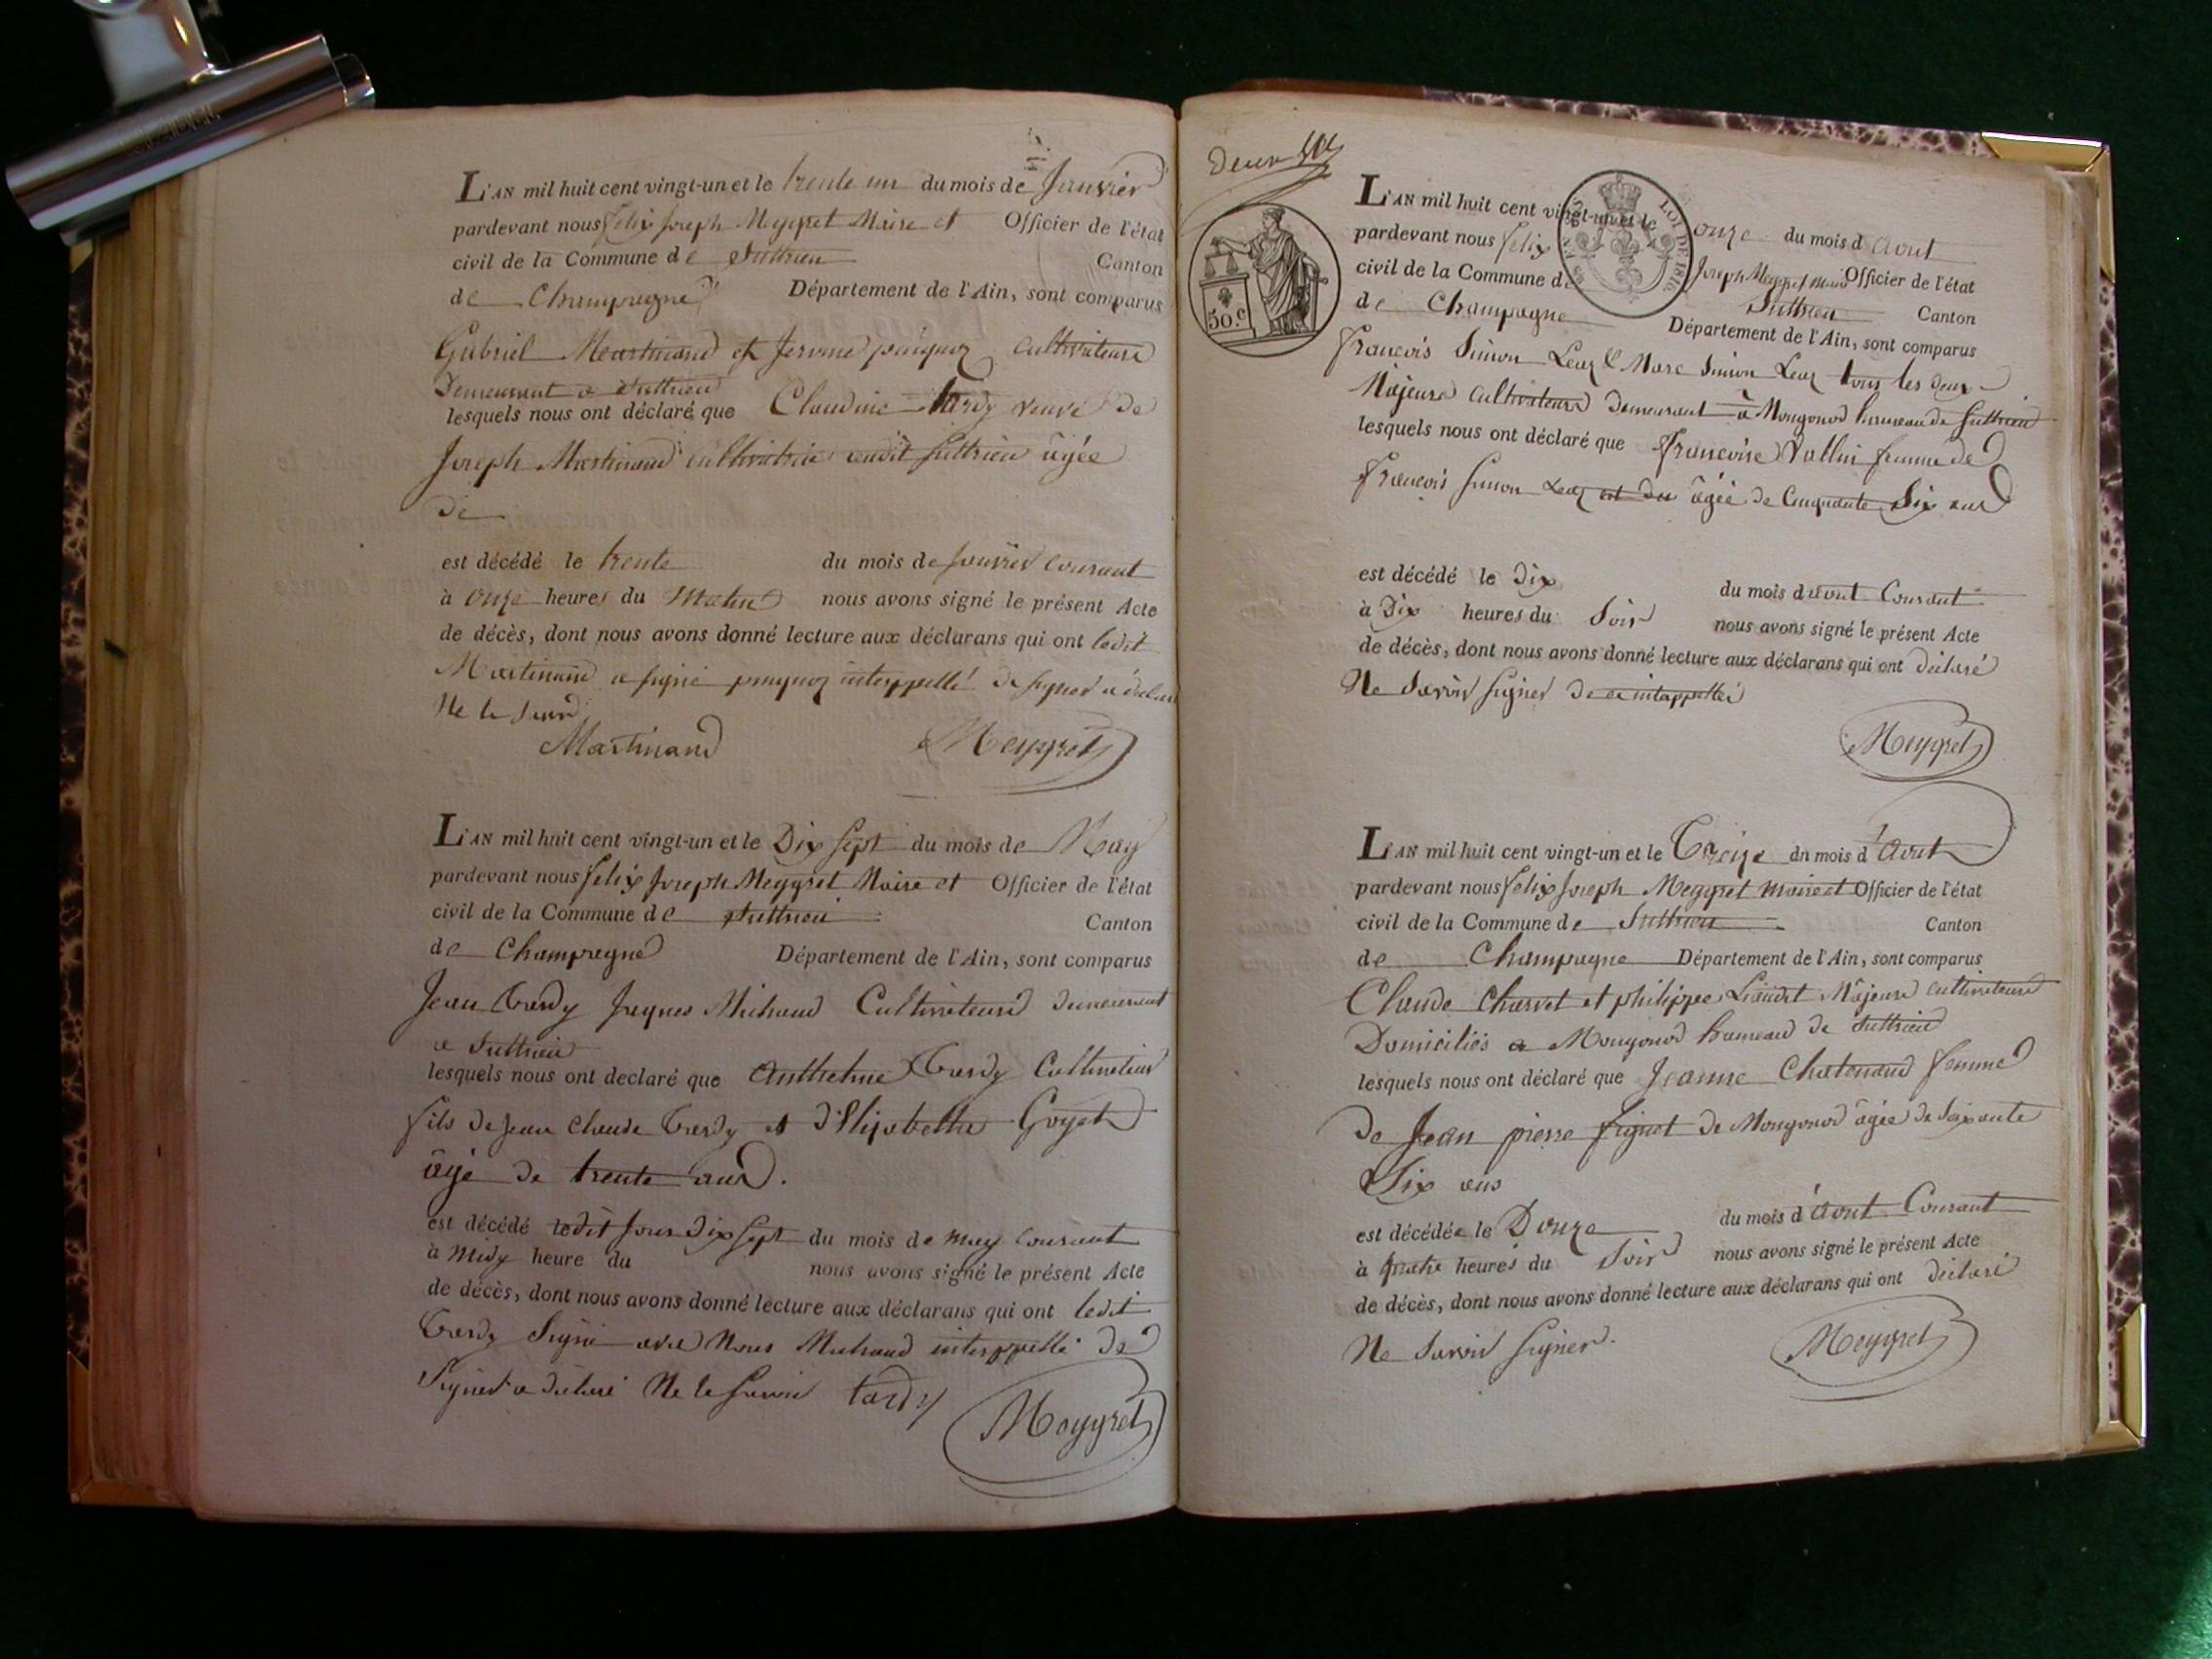 L'AN mil huit cent vingt-un et le trente un du mois de Janvier
pardevant nous felix Joseph Meygret Maire et Officier de l'état
civil de la Commune de Suttrieu Canton
de Champagne Département de l'Ain, sont comparus
Gabriel Martinand et Jerome cultivateurs
Demeurant a Suttrieu
lesquels nous ont déclaré que Claudine tardy veuve de
Joseph Martinand cultivatrice audit Suttrieu âgée
de
est décédé le trente du mois de janvier courant
à onze heures du Matin nous avons signé le présent Acte
de décès, dont nous avons donné lecture aux déclarans qui ont ledit
Martinand a signé interppellé de signer a déclaré
Ne le savoir
Martinand Meygret
L'AN mil huit cent vingt-un et le Dix sept du mois de May
pardevant nous felix Joseph Meygret Maire et Officier de l'état
civil de la Commune de Suttrieu Canton
de Champagne Département de l'Ain, sont comparus
Jean Tardy Jaques Michaud Cultivateurs demeurant
a Suttrieu
lesquels nous ont declaré que Anthelme Tardy Cultivateur
fils de Jean Claude Tardy et d'Elizabethe Goyet
âgé de trente ans.
est décédé ledit jour Dix sept du mois de may courant
à Midy heure du nous avons signé le présent Acte
de décès, dont nous avons donné lecture aux déclarans qui ont ledit
Tardy Signé avec Nous Michaud interppellé de
Signer a déclaré Ne le savoir tardy
Meygret
50.c
LOI DE 1816
L'AN mil huit cent vingt-un et le onze du mois d Aout
pardevant nous felix Joseph Meygret Maire Officier de l'état
civil de la Commune de Suttrieu Canton
de Champagne Département de l'Ain, sont comparus
francois Simon Leaz & Marc Simon Leaz tous les deux
Majeurs cultivateurs demeurant à Mongonod hameau de Suttrieu
lesquels nous ont déclaré que francoise Vallin femme de
francois Simon Leaz âgée de Cinquante Six ans
est décédé le Dix du mois d aout Courant
à Dix heures du Soir nous avons signé le présent Acte
de décès, dont nous avons donné lecture aux déclarans qui ont déclaré
Ne Savoir Signer de ce interppellé
Meygret
L'AN mil huit cent vingt-un et le Treize du mois d'Aout
pardevant nous felix Joseph Meygret maire et Officier de l'état
civil de la Commune de Suttrieu Canton
de Champagne Département de l'Ain, sont comparus
Claude Charvet et philippe Liaudet Majeurs cultivateurs
Domiciliés a Mongonod hameau de Suttrieu
lesquels nous ont déclaré que Jeanne Chatenaud femme
de Jean pierre de Mongonod âgée de Soixante
Six ans
est décédée le Douze du mois d'aout Courant
à quatre heures du Soir nous avons signé le présent Acte
de décès, dont nous avons donné lecture aux déclarans qui ont déclaré
Ne Savoir signer.
Meygret